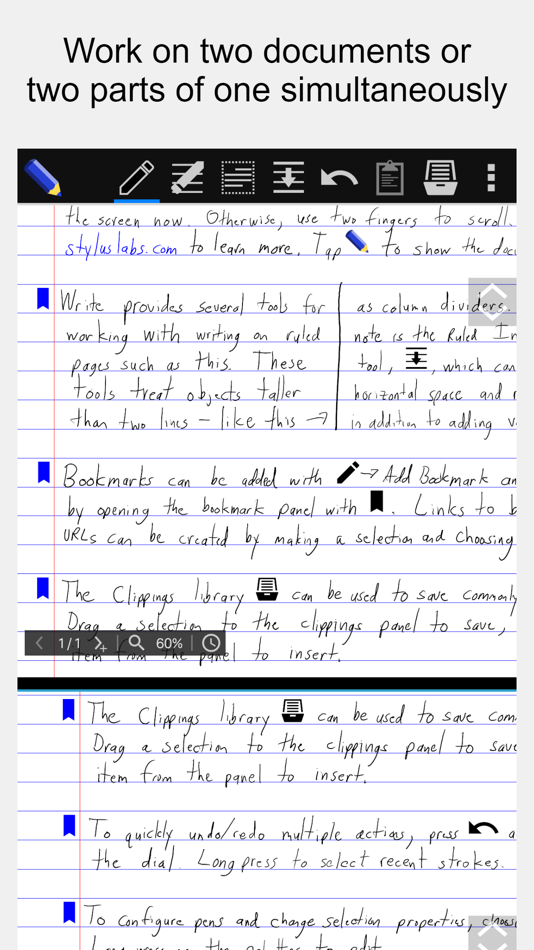 Work on two documents or
two parts of one simultaneously
the screen now. Otherwise, use two fingers to scroll.
styluslabs.com to learn more. Tap to show the doc
Write provides several tools for
working with writing on ruled
pages such as this. These
tools treat objects taller
than two lines - like this →
as column dividers.
note is the Ruled In
tool, , which can
horizontal space and
in addition to adding v
Bookmarks can be added with → Add Bookmark an
by opening the bookmark panel with . Links to b
URLs can be created by making a selection and choosing
The Clippings library can be used to save commonly
Drag a selection to the clippings panel to save,
item from the panel to insert.
1/1 60%
The Clippings library can be used to save com
Drag a selection to the clippings panel to save
item from the panel to insert.
To quickly undo/redo multiple actions, press a
the dial. Long press to select recent strokes.
To configure pens and change selection properties, choose
Long press on the palettes to edit